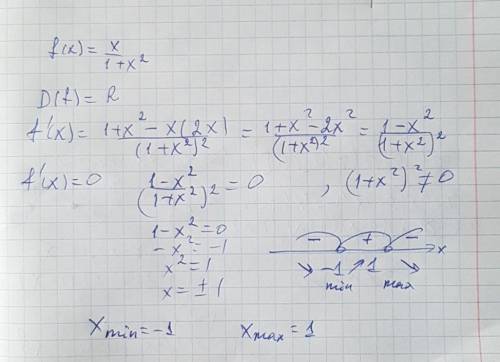 f(x) = x/(1+x²)
D(f) = R
f'(x) = (1+x² - x(2x))/(1+x²)² = (1+x²-2x²)/(1+x²)² = (1-x²)/(1+x²)²
f'(x) = 0   (1-x²)/(1+x²)² = 0   , (1+x²)² ≠ 0
1-x² = 0
-x² = -1
x² = 1
x = ± 1
- + -
↘ -1 ↗ 1 ↘ x
min max
x min = -1   x max = 1